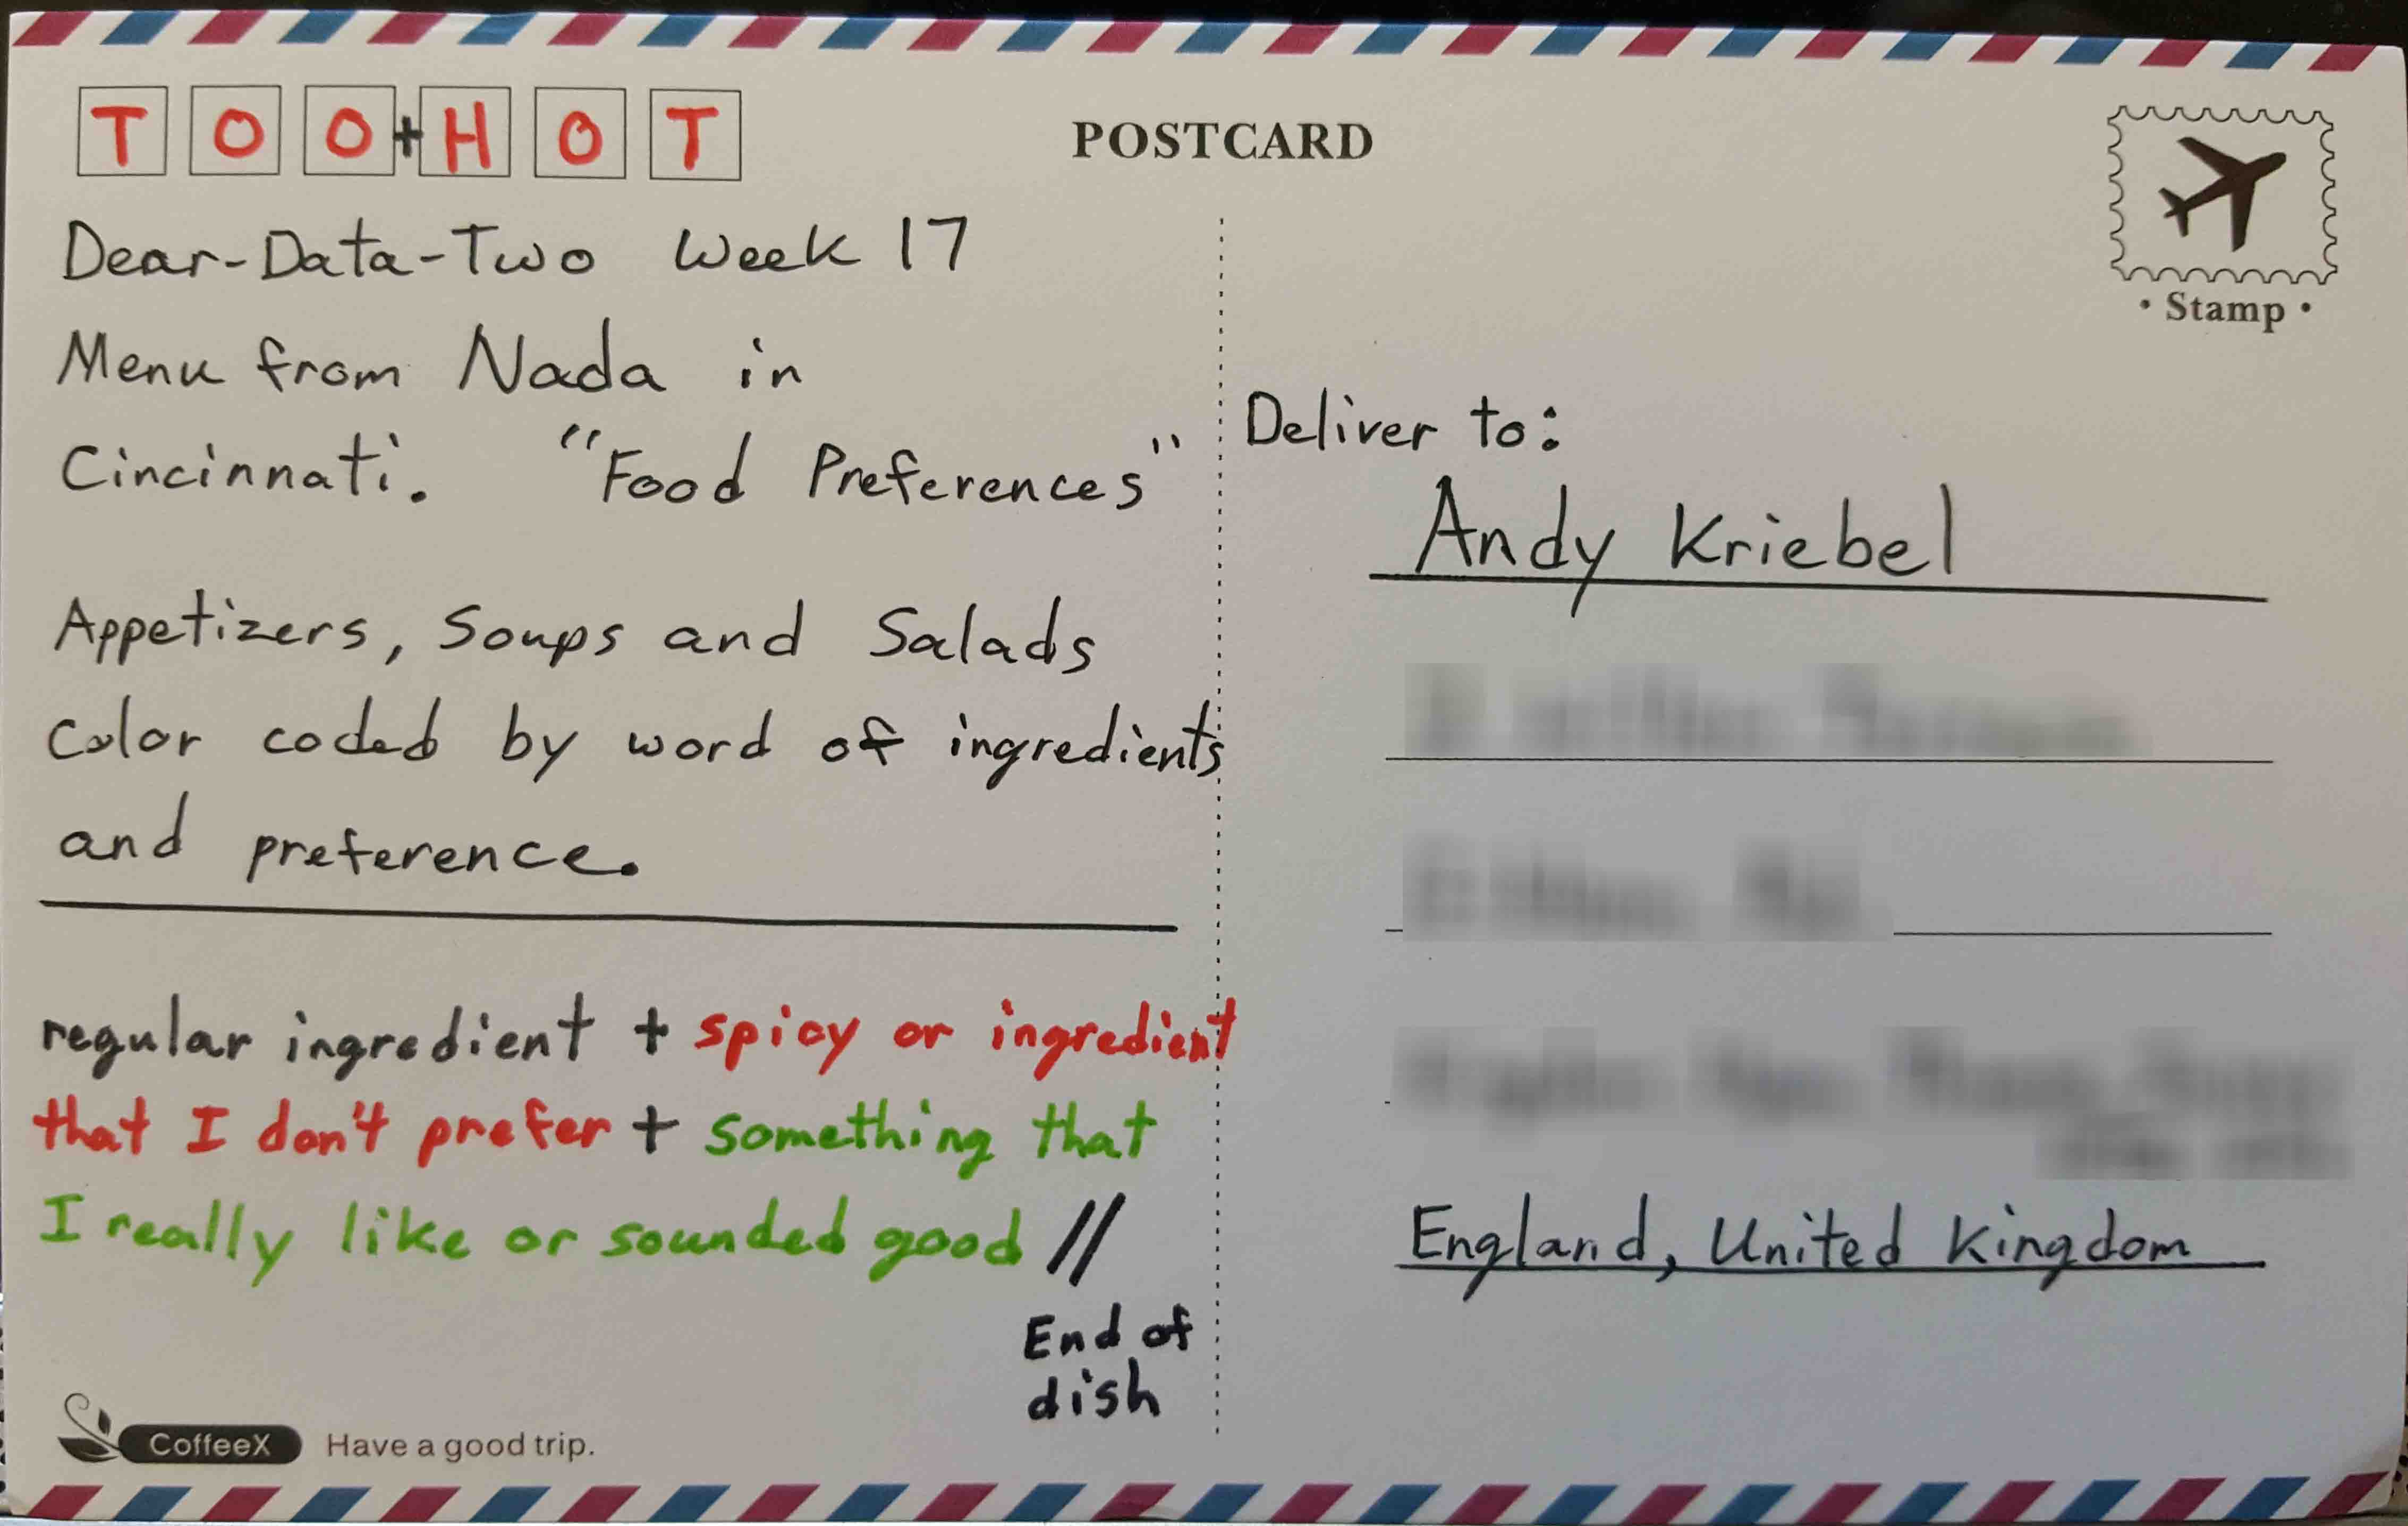 TOO+HOT
POSTCARD
• Stamp •
Dear-Data-Two Week 17
Menu from Nada in
Cincinnati. "Food Preferences"
Appetizers, Soups and Salads
color coded by word of ingredients
and preference.
regular ingredient + spicy or ingredient
that I don't prefer + something that
I really like or sounded good //
End of
dish
CoffeeX Have a good trip.
Deliver to:
Andy Kriebel
England, United Kingdom